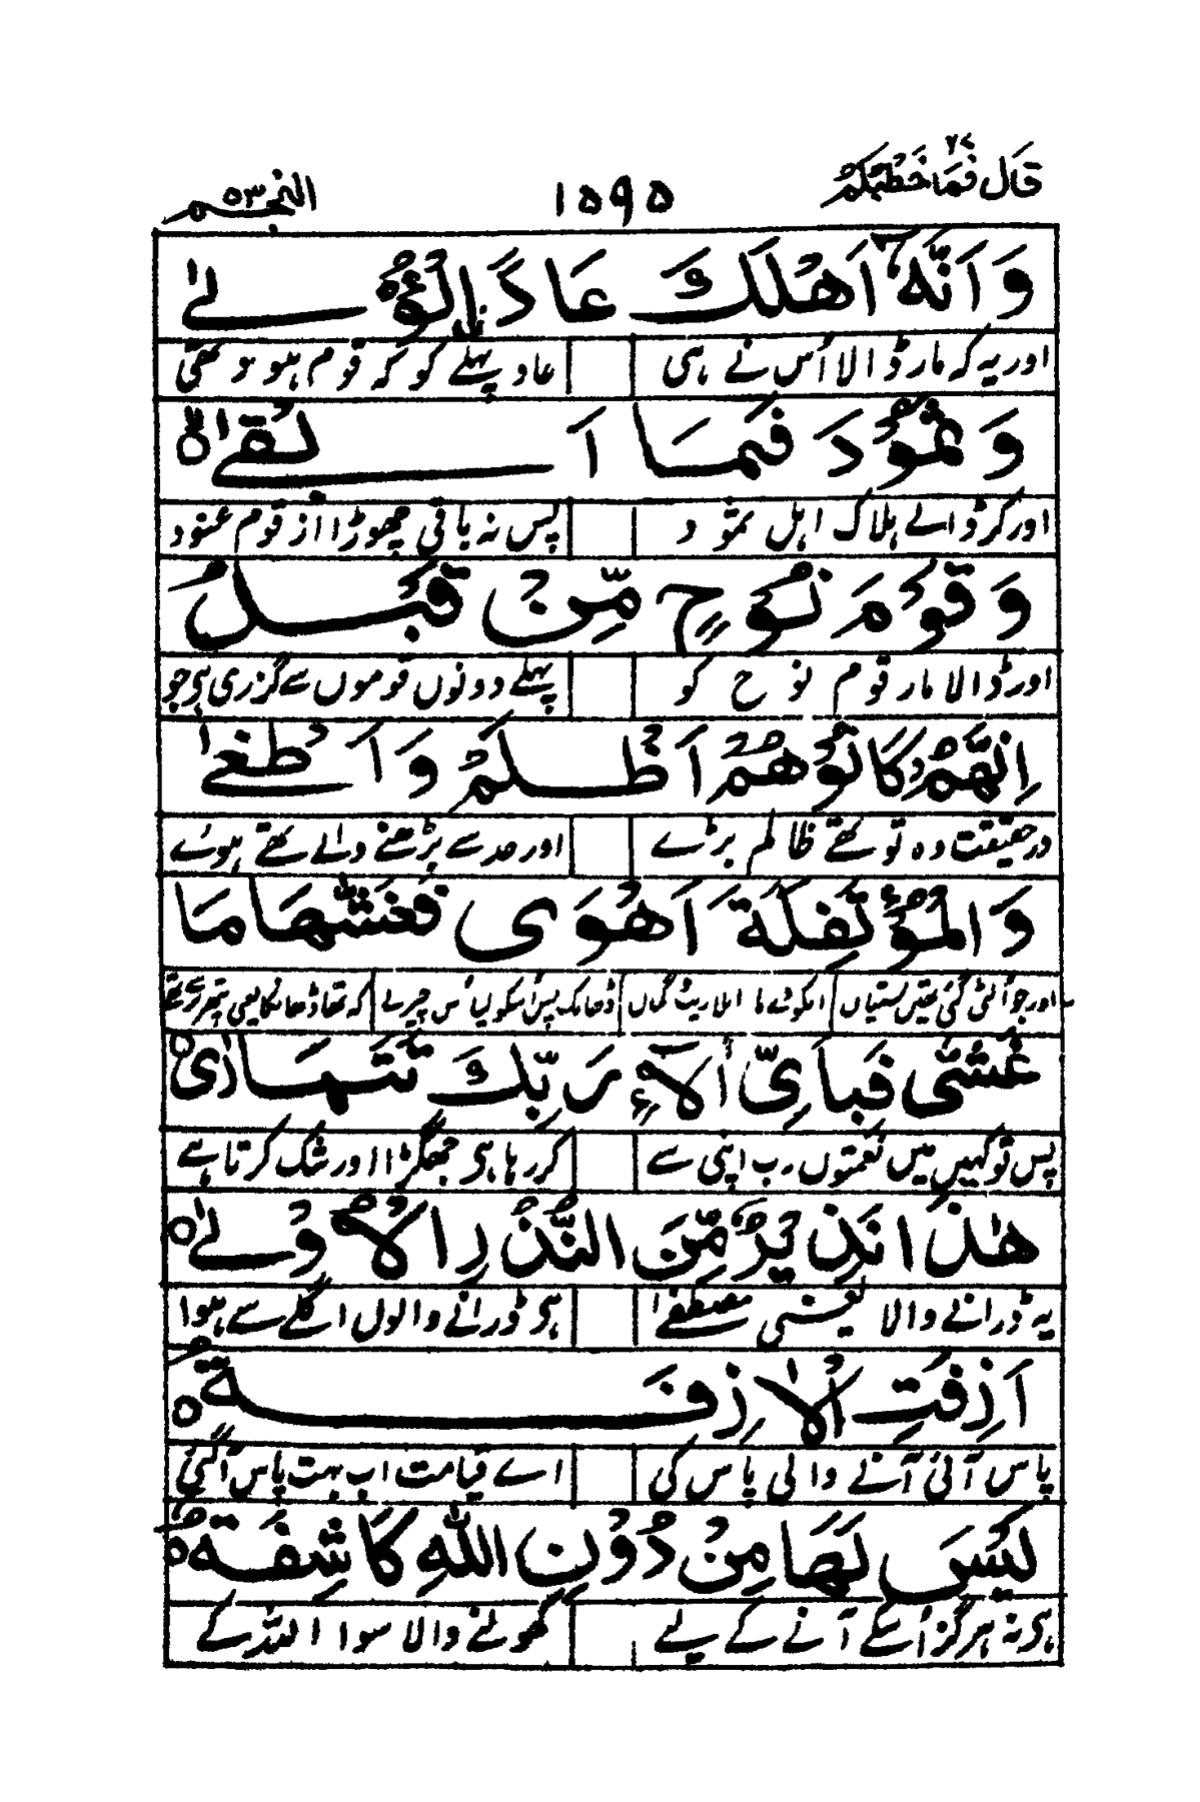 قَالَ فَمَا خَطْبُكُمْ ٢٧ ١٥٩٥ النجم ٥٣
وَاَنَّهٗۤ اَهْلَكَ عَادَا ۨالْاُوْلٰى
اور یہ کہ مار ڈالا اُس نے ہی عاد پہلے کو کہ قوم ہود تھی
وَثَمُوْدَ فَمَا اَبْقٰى ۙ
اور کر ڈالے ہلاک اہل ثمود پس نہ باقی چھوڑا از قوم عنود
وَقَوْمَ نُوْحٍ مِّنْ قَبْلُ
اور ڈالا مار قوم نوح کو پہلے دونوں قوموں سے گزری ہی جو
اِنَّهُمْ كَانُوْا هُمْ اَظْلَمَ وَاَطْغٰى
درحقیقت وہ تو تھے ظالم بڑے اور حد سے بڑھنے والے تھے ہوئے
وَالْمُؤْتَفِكَةَ اَهْوٰى فَغَشّٰهَا مَا
اور جو اُلٹی گئی تھیں بستیاں ڈھانک پس اُسکو لیا اُس چیز نے
غَشّٰى فَبِاَيِّ اٰلَآءِ رَبِّكَ تَتَمَارٰى
پس تو کہیں میں نعمتوں رب اپنی سے کر رہا ہی جھگڑا اور شک کرتا ہے
هٰذَا نَذِيْرٌ مِّنَ النُّذُرِ الْاُوْلٰى
یہ ڈرانے والا یعنی مصطفےٰ ہی ڈرانے والوں اگلے سے ہوا
اَزِفَتِ الْاٰزِفَةُ
پاس آئی آنے والی پاس کی اے قیامت اب بہت پاس آ گئی
لَيْسَ لَهَا مِنْ دُوْنِ اللّٰهِ كَاشِفَةٌ
ہی نہ ہرگز اُسکے آنے کے لیے کھولنے والا سوا اللہ کے